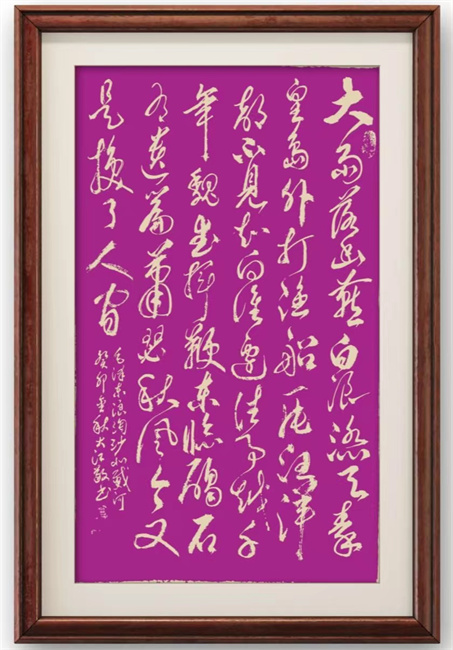 大雨落幽燕白浪滔天秦
皇岛外打渔船一片汪洋
都不见知向谁边往事越千
年魏武挥鞭东临碣石
有遗篇萧瑟秋风今又
是换了人间
毛泽东浪淘沙北戴河
癸卯秋大江敬书